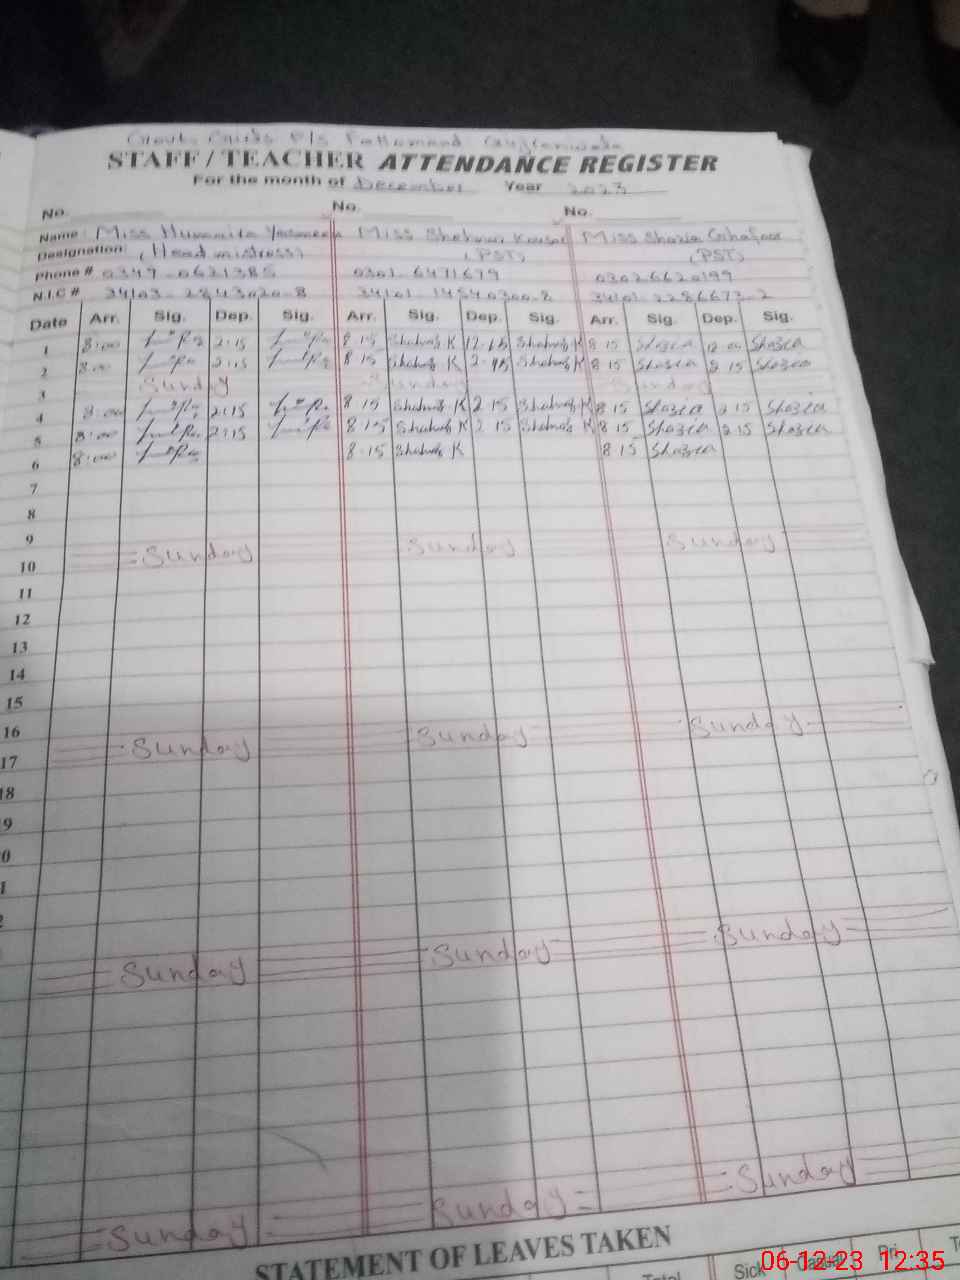 Govt. Girls P/S
STAFF / TEACHER ATTENDANCE REGISTER
For the month of December Year 2023
No. No. No.
Name: Miss Humaira Miss Miss Shazia
Designation: (Head mistress) (PST) (PST)
Phone # 0349-0621385 0301-6471679 03026620199
N.I.C # 34103-2843020-8 34101-14540300-8 34101-2286673-2
Date Arr. Sig. Dep. Sig. Arr. Sig. Dep. Sig. Arr. Sig. Dep. Sig.
1 8:00 2:15 8 15 Shahnaz K Shahnaz K 8 15 Shazia 12.00 Shazia
2 8:00 2:15 8 15 Shahnaz K Shahnaz K 8 15 Shazia Shazia
3 Sunday Sunday Sunday
4 8:00 2:15 8 15 Shahnaz K 2 15 Shahnaz K 8 15 Shazia 2 15 Shazia
5 8:00 2:15 8:15 Shahnaz K 2 15 Shahnaz K 8 15 Shazia 2 15 Shazia
6 8:00 8-15 Shahnaz K 8 15 Shazia
7
8
9
10 Sunday Sunday Sunday
11
12
13
14
15
16
17 Sunday Sunday Sunday
18
9
0
1
2
Sunday Sunday Sunday
Sunday Sunday Sunday
STATEMENT OF LEAVES TAKEN
Total Sick Casual Pri.
06-12-23 12:35